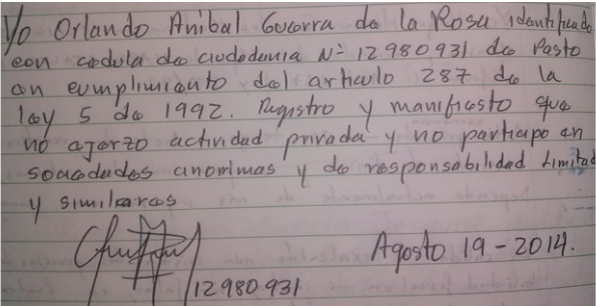 Yo Orlando Anibal Guerra de la Rosa identificado
con cedula de ciudadania Nº 12980931 de Pasto
en cumplimiento del articulo 287 de la
ley 5 de 1992. Registro y manifiesto que
no ejerzo actividad privada y no participo en
sociedades anonimas y de responsabilidad Limitad
y similares
Agosto 19-2014.
12980931